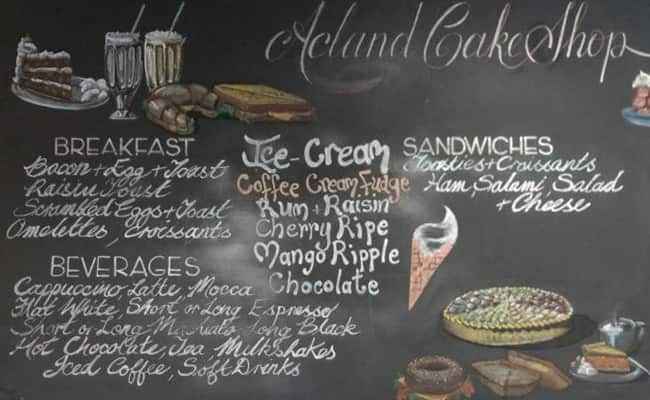 Acland Cake Shop
BREAKFAST
Bacon + Egg + Toast
Raisin Toast
Scrambled Eggs + Toast
Omelettes, Croissants
BEVERAGES
Cappuccino, Latte, Mocca
Flat White, Short or Long Espresso
Short or Long Machiato, Long Black
Hot Chocolate, Tea, Milkshakes
Iced Coffee, Soft Drinks
Ice-Cream
Coffee Cream Fudge
Rum + Raisin
Cherry Ripe
Mango Ripple
Chocolate
SANDWICHES
Toasties + Croissants
Ham, Salami, Salad
+ Cheese